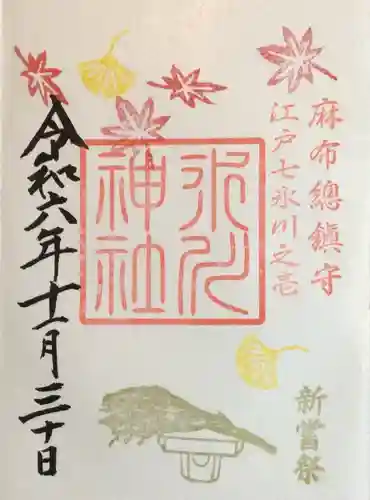 麻布總鎮守
江戸七氷川之壱
氷川
神社
新嘗祭
令和六年十一月三十日